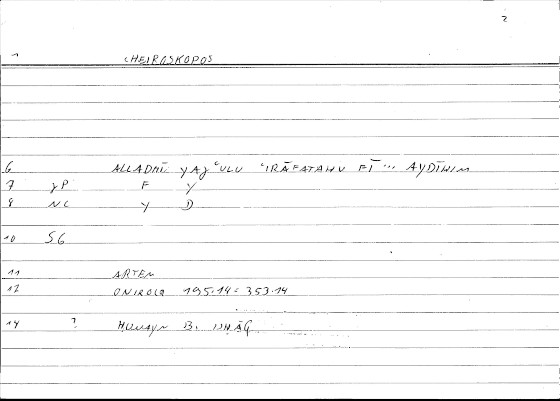 2
1 CHEIROSKOPOS
6 ALLADHĪ YAǦʿULU ʿIRĀFATAHU FĪ ... AYDĪHIM
7 ǧP F Y
8 NC Y D
10 SG
11 ARTEM
12 ONIROCR 195.14 = 353.14
14 ? HUNAYN B. ISHĀQ